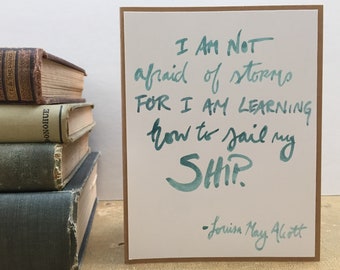 DONOHUE
I AM NOT
afraid of storms
FOR I AM LEARNING
how to sail my
SHIP.
-Louisa May Alcott